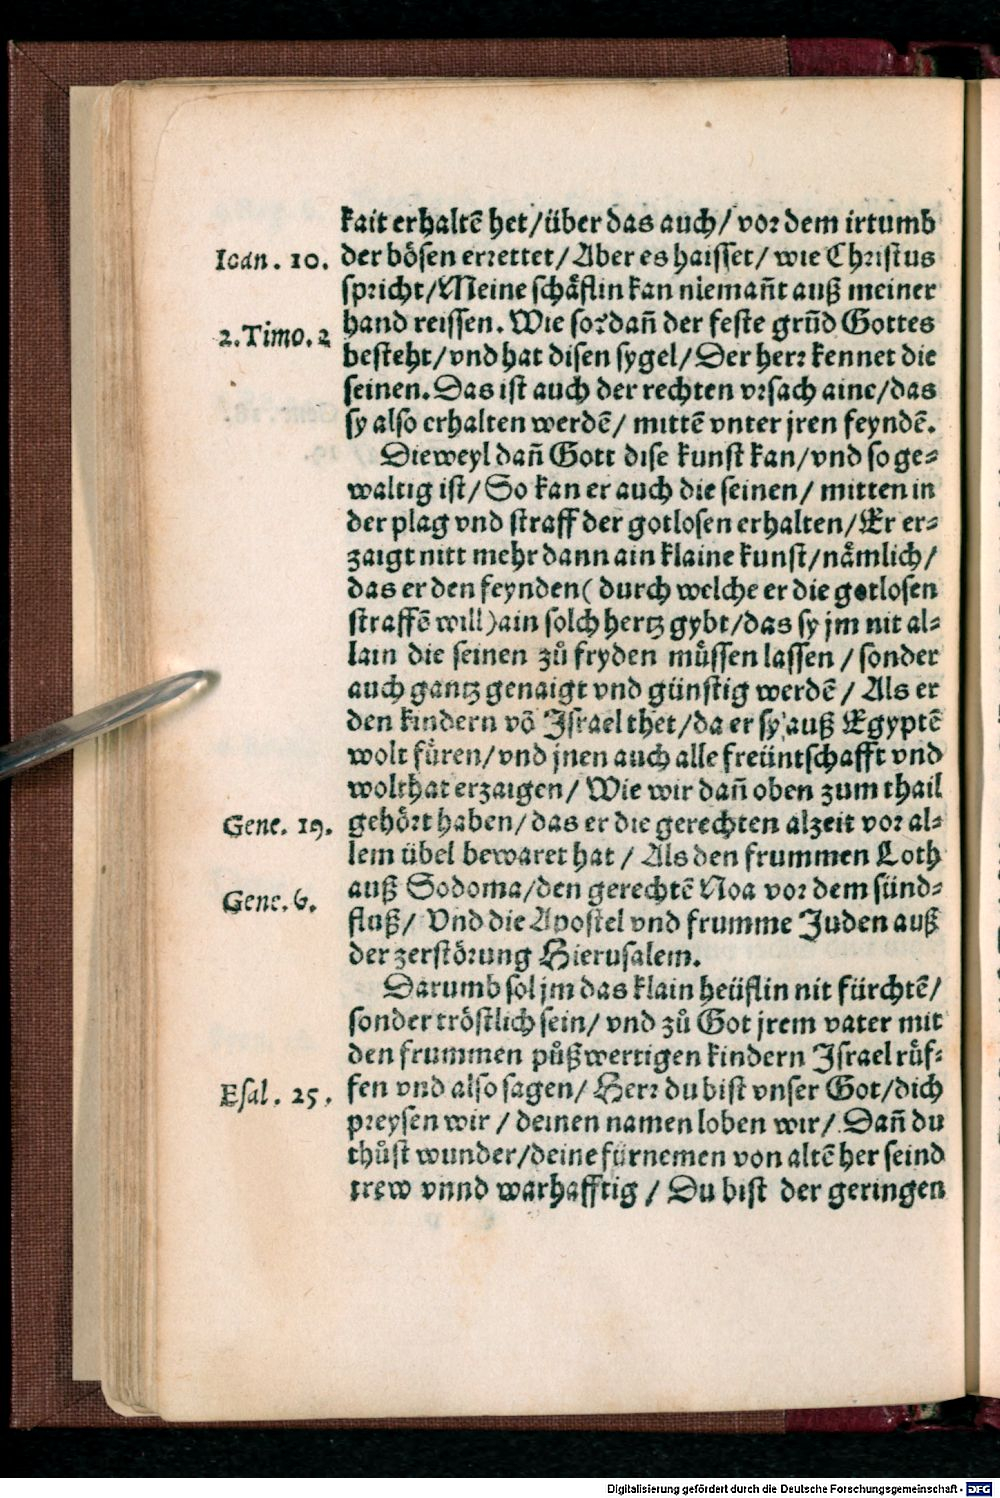 kait erhaltē het/über das auch/ vor dem irtumb
Ioan. 10. der bösen errettet/Aber es haisset/ wie Christus
spricht/Meine schäflin kan niemañt auß meiner
2. Timo. 2 hand reissen. Wie so? dañ der feste grūd Gottes
besteht/vnd hat disen sygel/Der herr kennet die
seinen. Das ist auch der rechten vrsach aine/das
sy also erhalten werdē/ mittē vnter jren feyndē.
Dieweyl dañ Gott dise kunst kan/vnd so ge-
waltig ist/So kan er auch die seinen/ mitten in
der plag vnd straff der gotlosen erhalten/Er er-
zaigt nitt mehr dann ain klaine kunst/nämlich/
das er den feynden( durch welche er die gotlosen
straffē will)ain solch hertz gybt/das sy jm nit al-
lain die seinen zů fryden müssen lassen / sonder
auch gantz genaigt vnd günstig werdē / Als er
den kindern vō Israel thet/da er sy auß Egyptē
wolt füren/vnd jnen auch alle freüntschafft vnd
wolthat erzaigen/ Wie wir dañ oben zum thail
Gene. 19. gehört haben/das er die gerechten alzeit vor al-
lem übel bewaret hat / Als den frummen Loth
Gene. 6. auß Sodoma/den gerechtē Noa vor dem sünd-
fluß/ Vnd die Apostel vnd frumme Juden auß
der zerstörung Hierusalem.
Darumb sol jm das klain heüflin nit fürchtē/
sonder tröstlich sein/ vnd zů Got jrem vater mit
den frummen půßwertigen kindern Israel rüf-
Esai. 25. fen vnd also sagen/ Herr du bist vnser Got/dich
preysen wir / deinen namen loben wir/ Dañ du
thůst wunder/deine fürnemen von altē her seind
trew vnnd warhafftig / Du bist der geringen
Digitalisierung gefördert durch die Deutsche Forschungsgemeinschaft - DFG